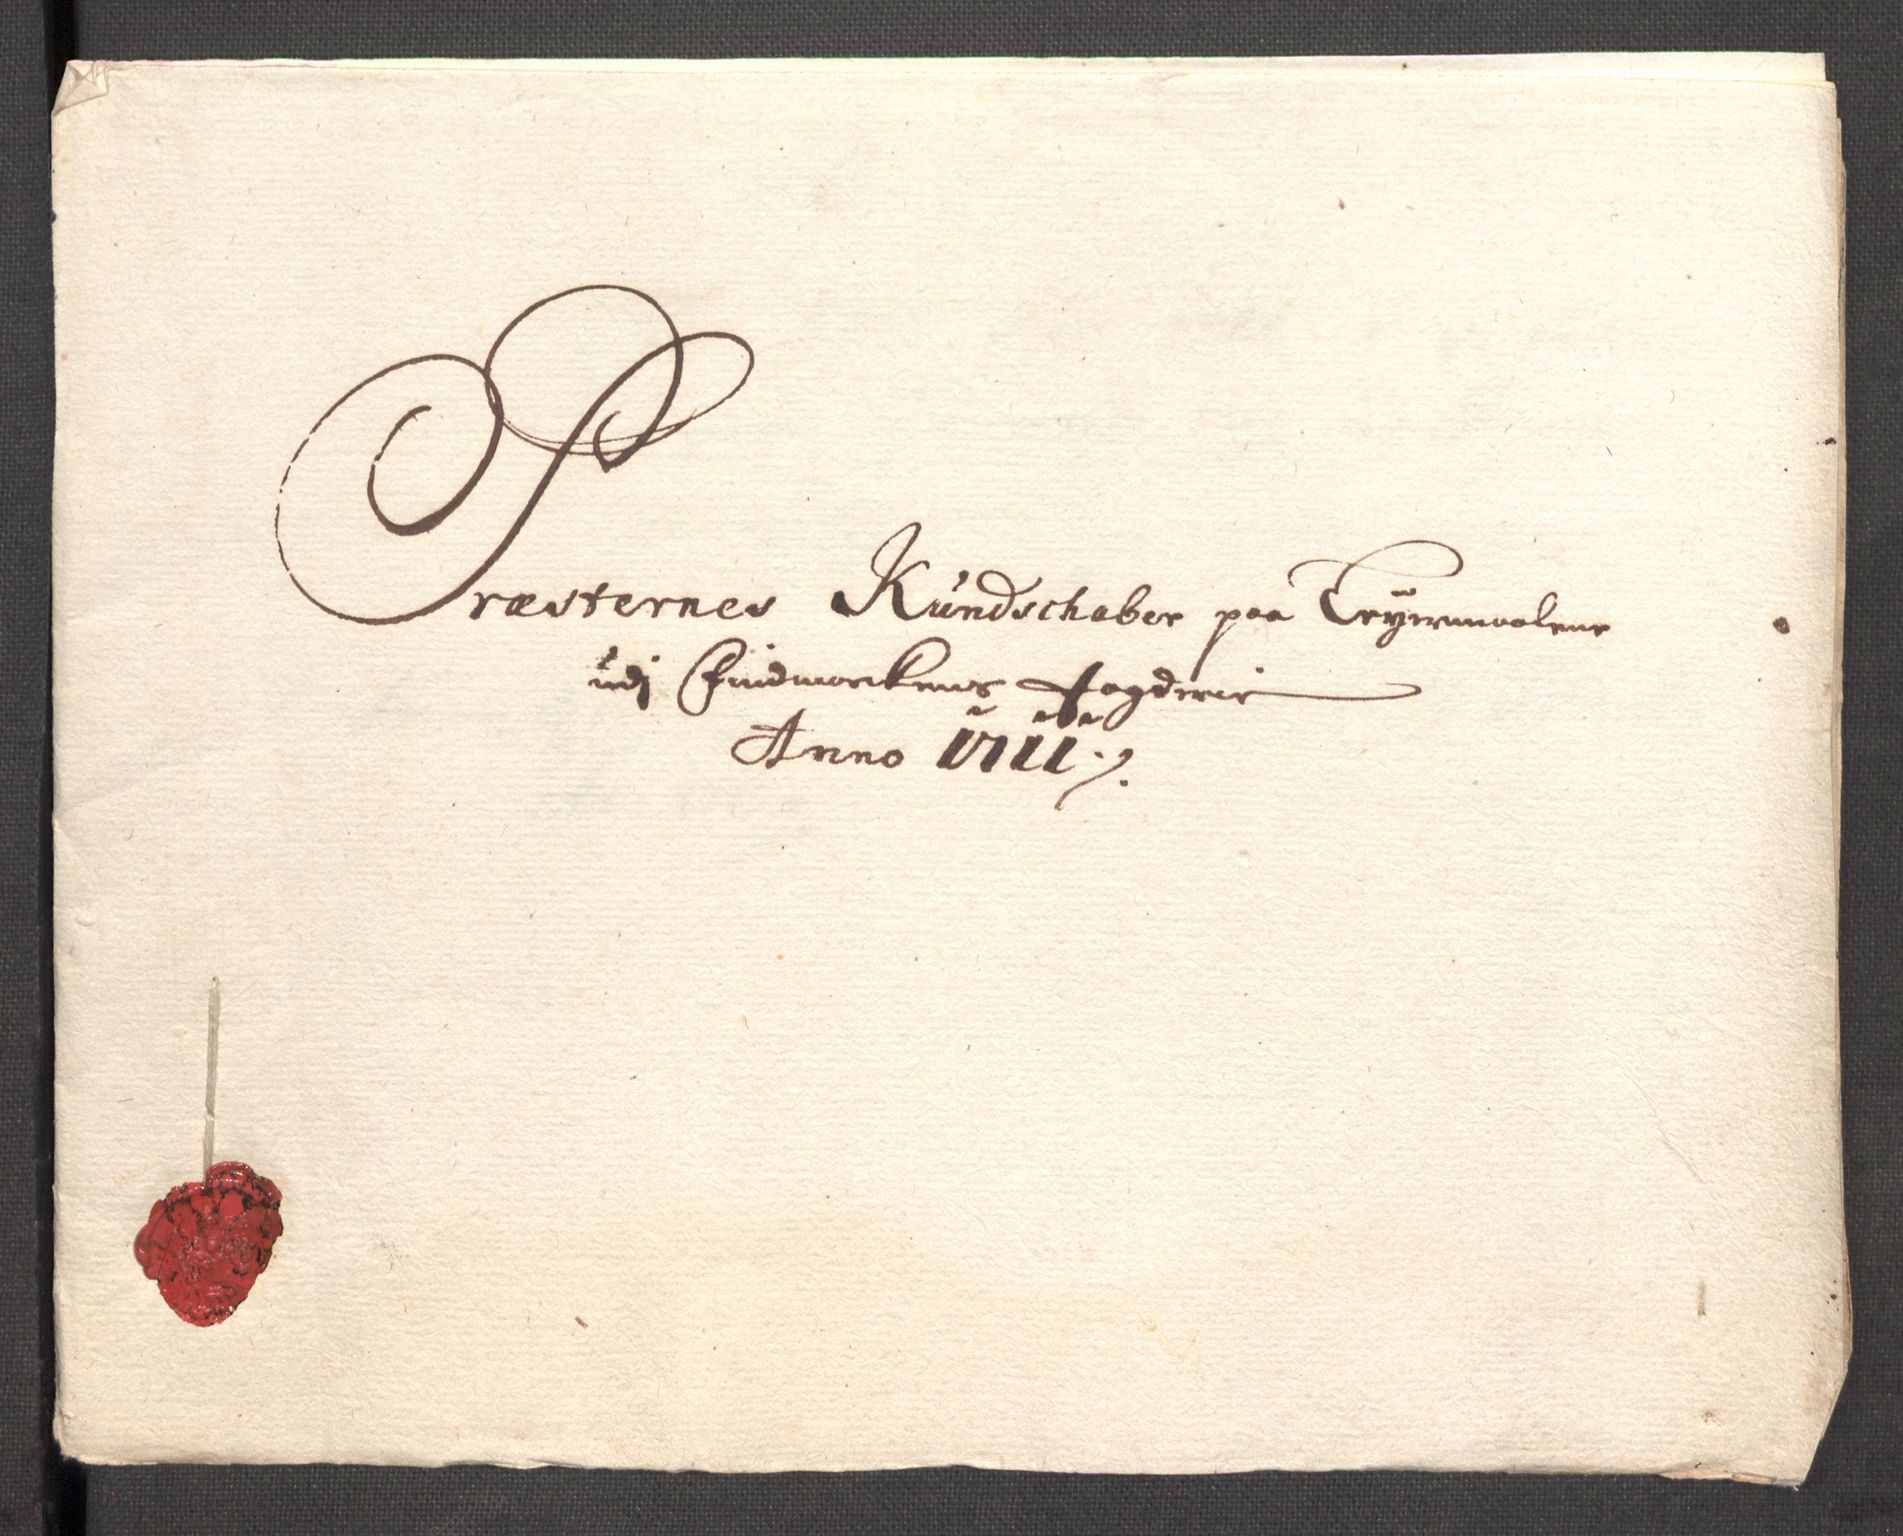 Præsternes Kundschaber paa Leyermaalene
udj Findmarckens Fogderie
Anno 1711 ./.